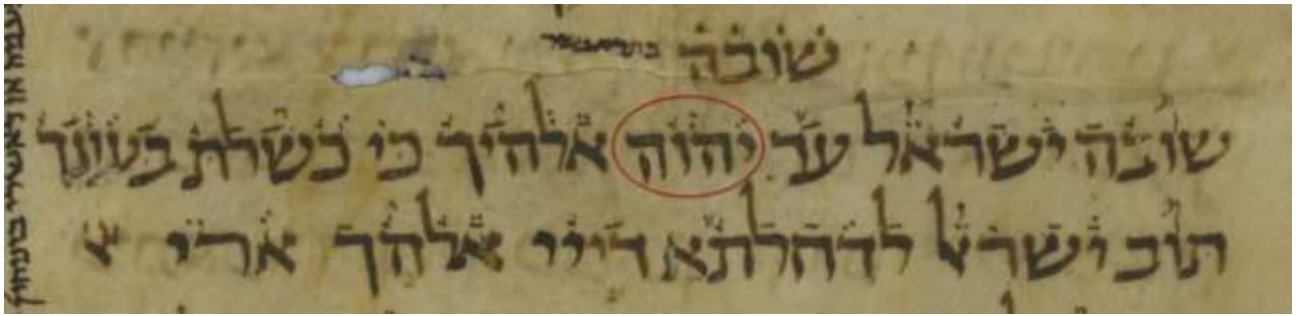 שובה בתרי עשר
שובה ישראל עד יהוה אלהיך כי כשלת בעונך
תוב ישראל לדחלתא דייי אלהך ארי